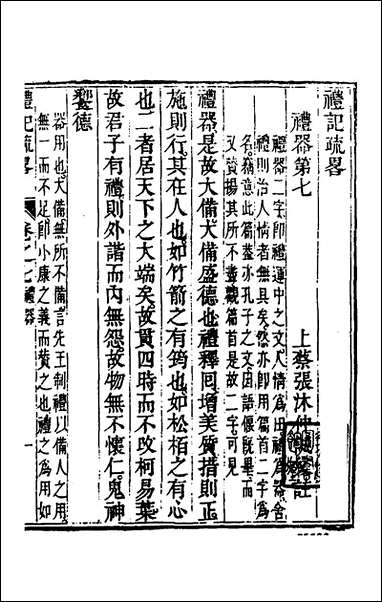 禮記疏畧
上蔡張沐仲誠註
禮器第七
禮器二字即禮運中之文人情為田禮為器舍
禮則治人情者無具矣然亦即用篇首二字為
名竊意此篇蓋亦孔子之文因語偃既畢而
又贊揚其所不盡觀篇首是故二字可見
禮器是故大備大備盛德也禮釋回增美質措則正
施則行其在人也如竹箭之有筠也如松柏之有心
也二者居天下之大端矣故貫四時而不改柯易葉
故君子有禮則外諧而內無怨故物無不懷仁鬼神
饗德
器用也大備無所不備言先王制禮以備人之用
無一而不足即小康之義而贊之也禮之為用如
禮記疏畧
卷之七禮器
一